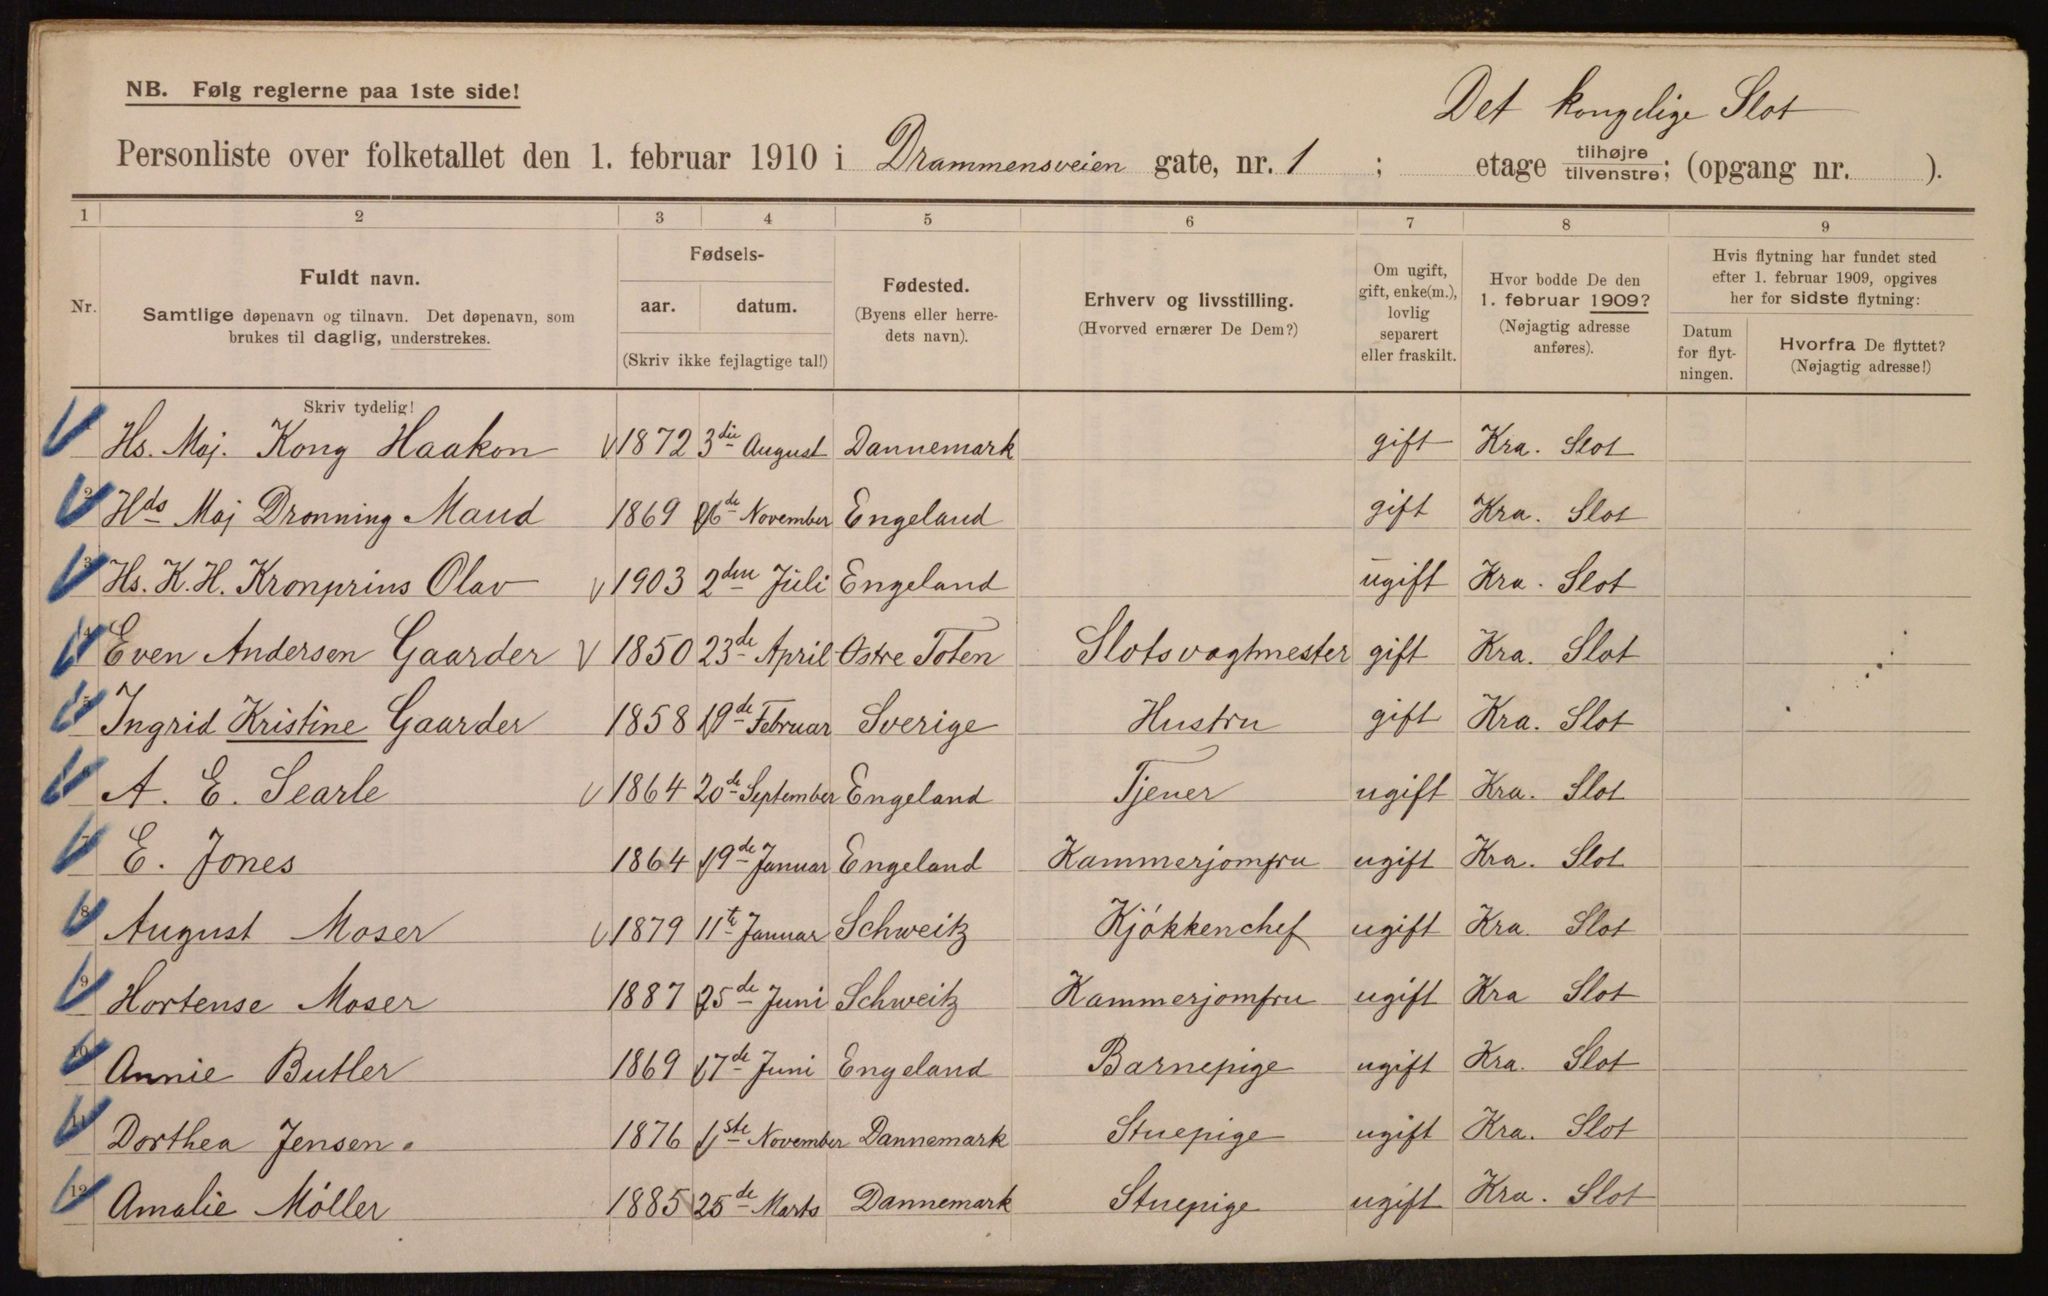 NB. Følg reglerne paa 1ste side!
Det kongelige Slot
Personliste over folketallet den 1. februar 1910 i Drammensveien gate, nr. 1 ; etage tilhøjre/tilvenstre; (opgang nr. ).
1 2 3 4 5 6 7 8 9
Nr.
Fuldt navn.
Samtlige døpenavn og tilnavn. Det døpenavn, som
brukes til daglig, understrekes.
Skriv tydelig!
Fødsels-
aar. datum.
(Skriv ikke fejlagtige tal!)
Fødested.
(Byens eller herre-
dets navn).
Erhverv og livsstilling.
(Hvorved ernærer De Dem?)
Om ugift,
gift, enke(m.),
lovlig
separert
eller fraskilt.
Hvor bodde De den
1. februar 1909?
(Nøjagtig adresse
anføres).
Hvis flytning har fundet sted
efter 1. februar 1909, opgives
her for sidste flytning:
Datum
for flyt-
ningen.
Hvorfra De flyttet?
(Nøjagtig adresse!)
Hs. Maj. Kong Haakon 1872 3die August Dannemark gift Kra. Slot
2 Hds Maj Dronning Maud 1869 26de November Engeland gift Kra. Slot
3 Hs. K. H. Kronprins Olav 1903 2den Juli Engeland ugift Kra. Slot
4 Even Andersen Gaarder 1850 23de April Østre Toten Slotsvagtmester gift Kra. Slot
5 Ingrid Kristine Gaarder 1858 19de Februar Sverige Hustru gift Kra. Slot
6 A. E. Searle 1864 20de September Engeland Tjener ugift Kra. Slot
7 E. Jones 1864 19de Januar Engeland Kammerjomfru ugift Kra. Slot
8 August Moser 1879 11te Januar Schweitz Kjøkkenchef ugift Kra. Slot
9 Hortense Moser 1887 25de Juni Schweitz Kammerjomfru ugift Kra Slot
10 Annie Butler 1869 17de Juni Engeland Barnepige ugift Kra. Slot
11 Dorthea Jensen. 1876 1ste November Dannemark Stuepige ugift Kra. Slot
12 Amalie Møller 1885 25de Marts Dannemark Stuepige ugift Kra. Slot